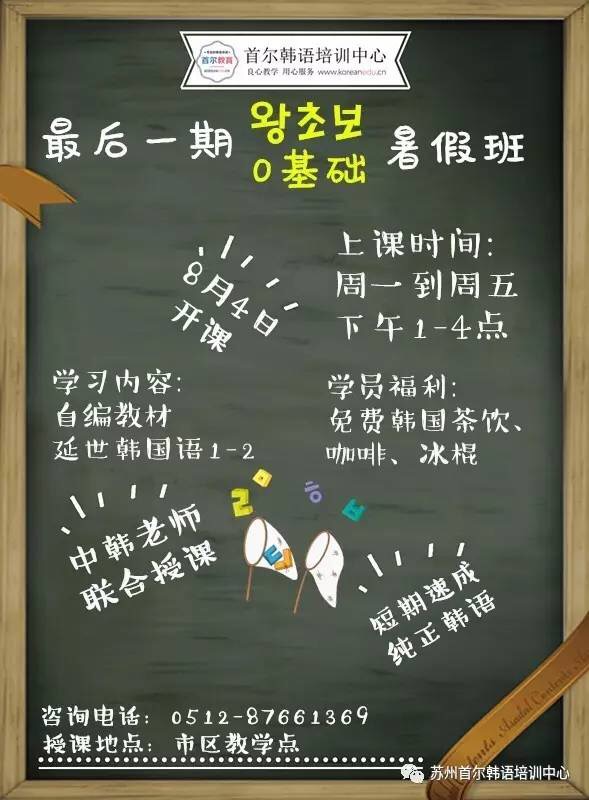 首尔教育
首尔韩语培训中心
良心教学 用心服务 www.koreanedu.cn
最后一期 왕초보 暑假班
0基础
8月4日
开课
上课时间:
周一到周五
下午1-4点
学习内容:
自编教材
延世韩国语1-2
学员福利:
免费韩国茶饮、
咖啡、冰棍
中韩老师
联合授课
短期速成
纯正韩语
咨询电话: 0512-87661369
授课地点: 市区教学点
苏州首尔韩语培训中心